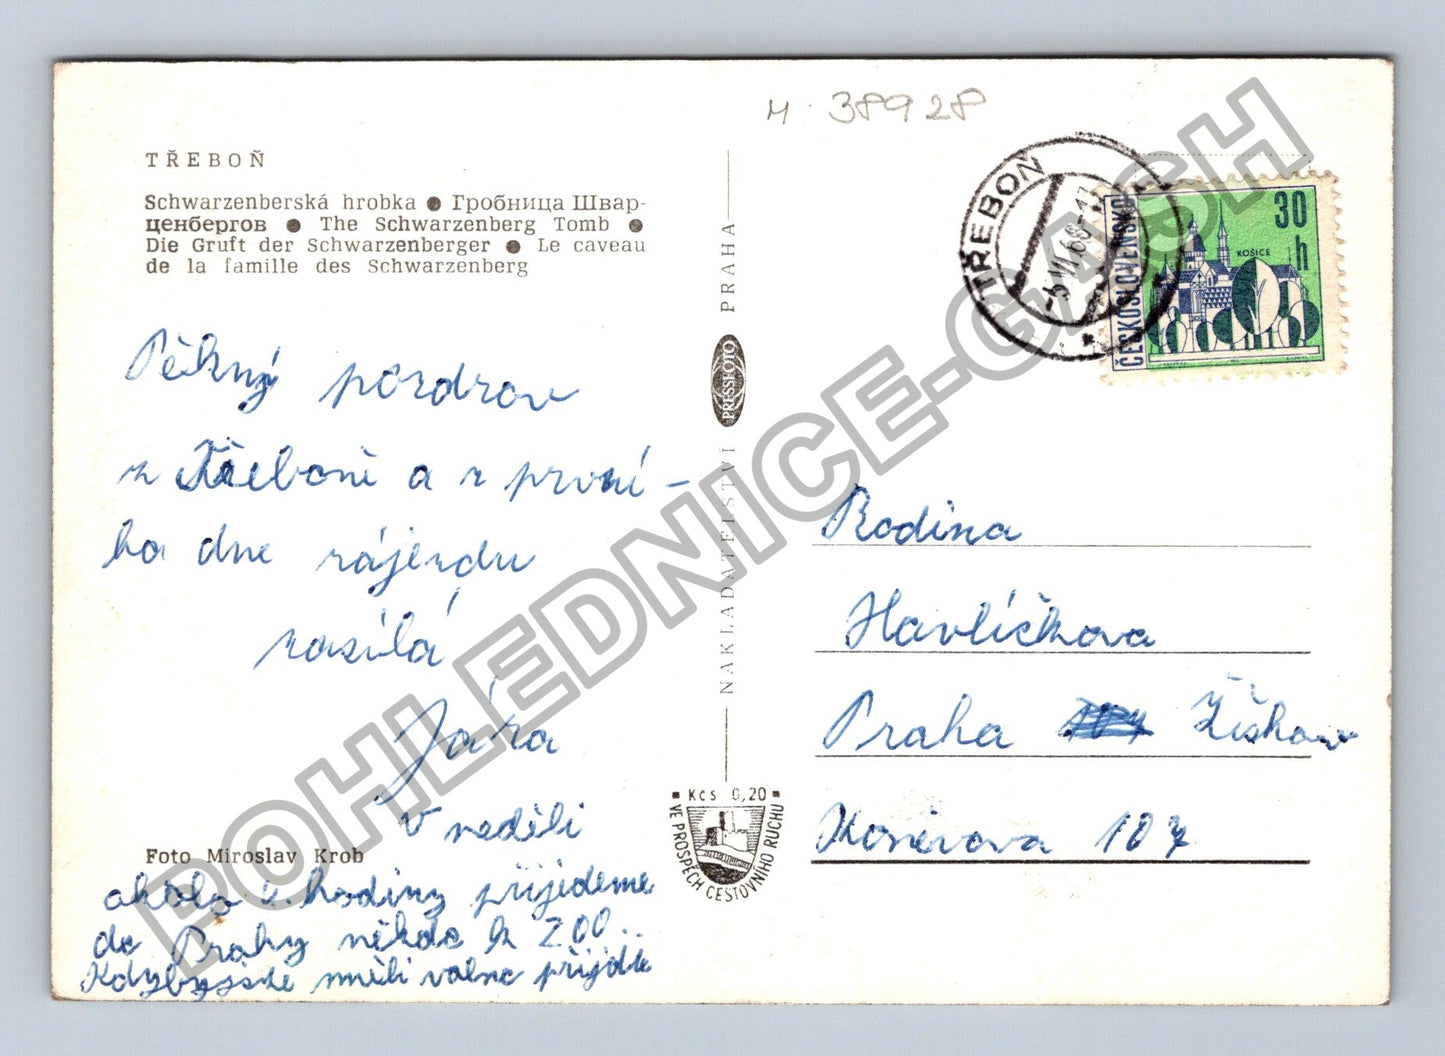 M 38928
TŘEBOŇ
Schwarzenberská hrobka ● Гробница Швар-
ценбергов ● The Schwarzenberg Tomb ●
Die Gruft der Schwarzenberger ● Le caveau
de la famille des Schwarzenberg
Pěkný pozdrav
z Třeboně a z první-
ho dne zájezdu
zasílá
Jára
V neděli
Foto Miroslav Krob
okolo 6. hodiny přijedeme
do Prahy někde k ZOO..
Kdybyjste měli volno přijdte
NAKLADATELSTVÍ PRESSFOTO PRAHA
Kčs 0,20
VE PROSPĚCH CESTOVNÍHO RUCHU
TŘEBOŇ
ČESKOSLOVENSKO
30 h
KOŠICE
Rodina
Havlíčkova
Praha Žižkov
Koněvova 107
POHLEDNICE-GASH